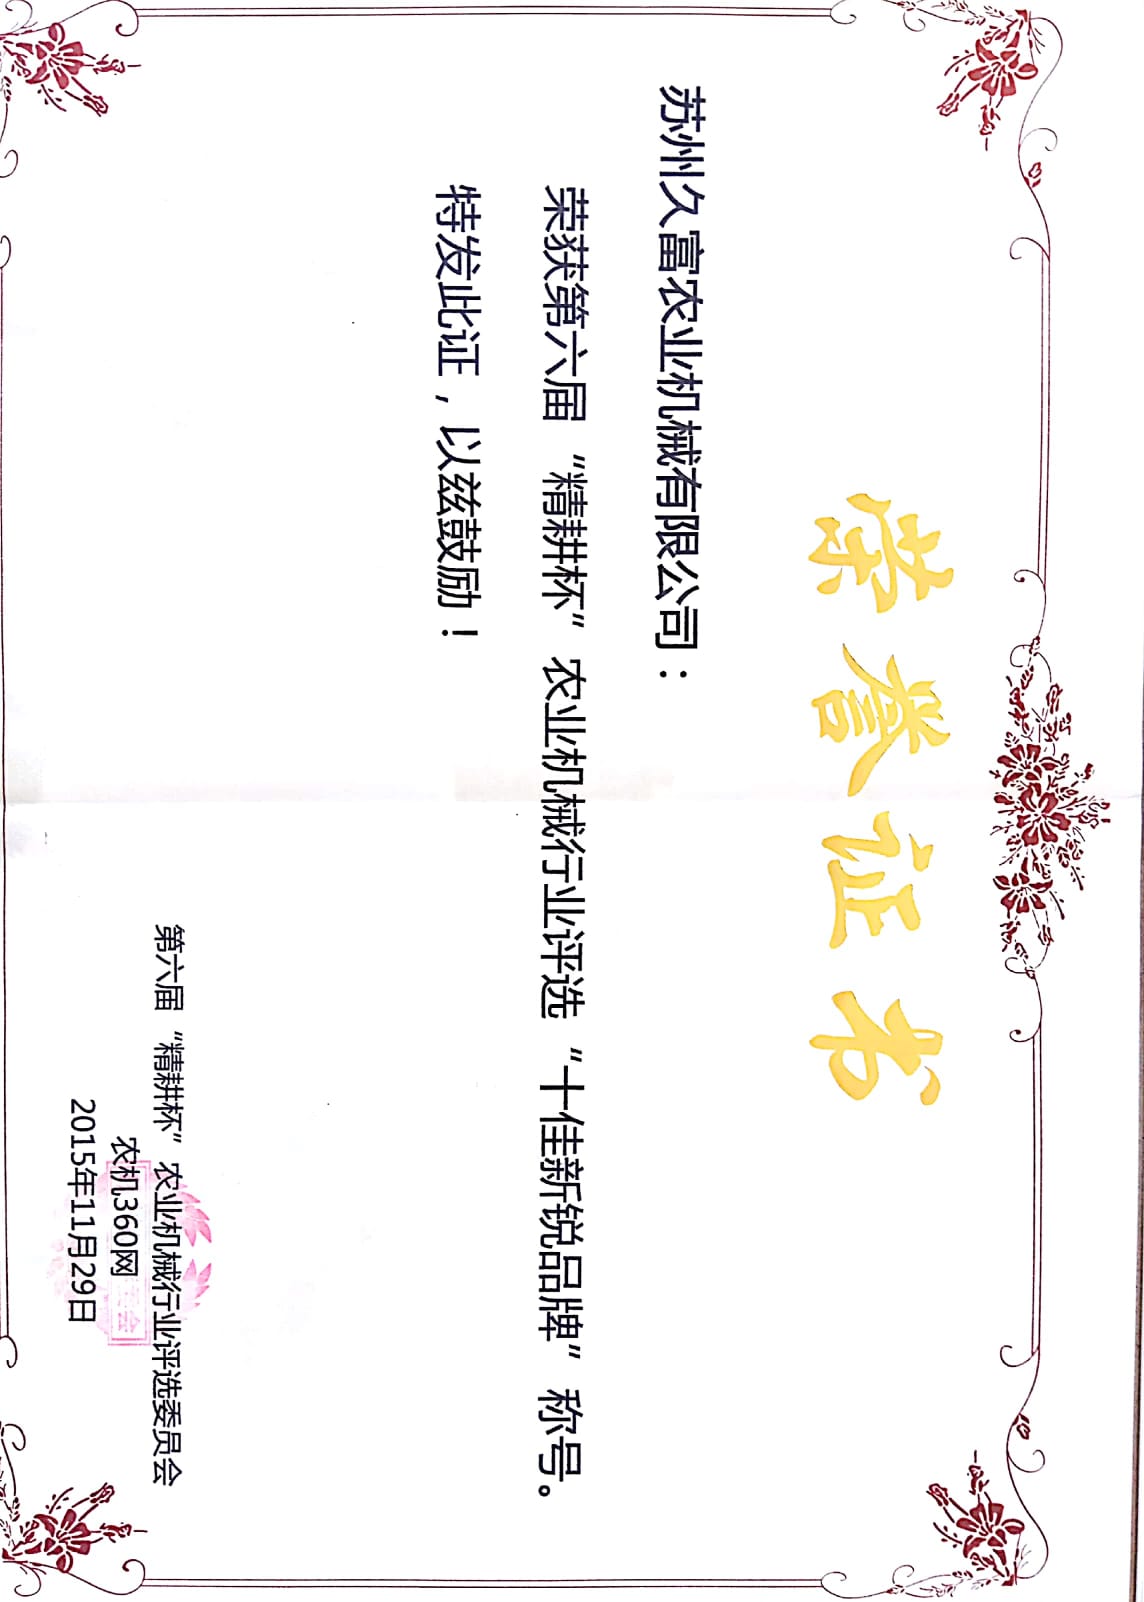 荣誉证书
苏州久富农业机械有限公司：
荣获第六届“精耕杯”农业机械行业评选“十佳新锐品牌”称号。
特发此证，以兹鼓励！
第六届“精耕杯”农业机械行业评选委员会
农机360网
2015年11月29日